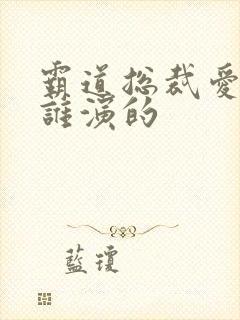 霸道总裁爱
誰演的
藍瓊